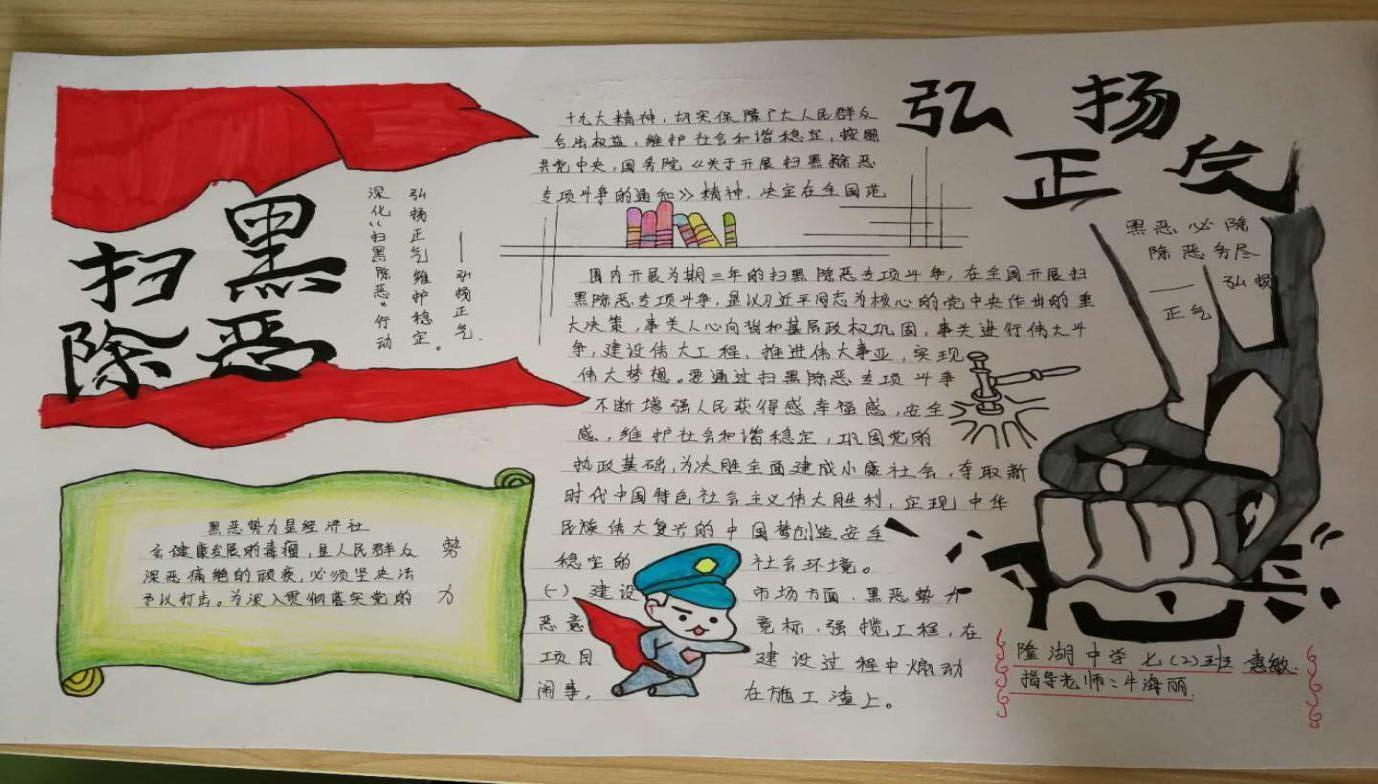 扫黑
除恶
弘扬正气维护稳定。
深化“扫黑除恶”行动
——弘扬正气.
黑恶势力是经济社
会健康发展的毒瘤,是人民群众
深恶痛绝的顽疾,必须坚决法
予以打击。为深入贯彻落实党的
势
力
十九大精神,切实保障广大人民群众
合法权益,维护社会和谐稳定,按照
共党中央,国务院《关于开展扫黑除恶
专项斗争的通知》精神,决定在全国范
围内开展为期三年的扫黑除恶专项斗争,在全国开展扫
黑除恶专项斗争,是以习近平同志为核心的党中央作出的重
大决策,事关人心向背和基层政权巩固,事关进行伟大斗
争,建设伟大工程、推进伟大事业,实现
伟大梦想。要通过扫黑除恶专项斗争
不断增强人民获得感,幸福感,安全
感,维护社会和谐稳定,巩固党的
执政基础,为决胜全面建成小康社会,夺取新
时代中国特色社会主义伟大胜利,实现中华
民族伟大复兴的中国梦创造安全
稳定的社会环境。
(一)建设市场方面,黑恶势力
恶意竞标,强揽工程,在
项目建设过程中煽动
闹事,在施工渣上。
弘扬
正气
黑恶必除
除恶务尽
——弘扬
正气
隆湖中学七(2)班 惠敏.
指导老师:牛海丽.